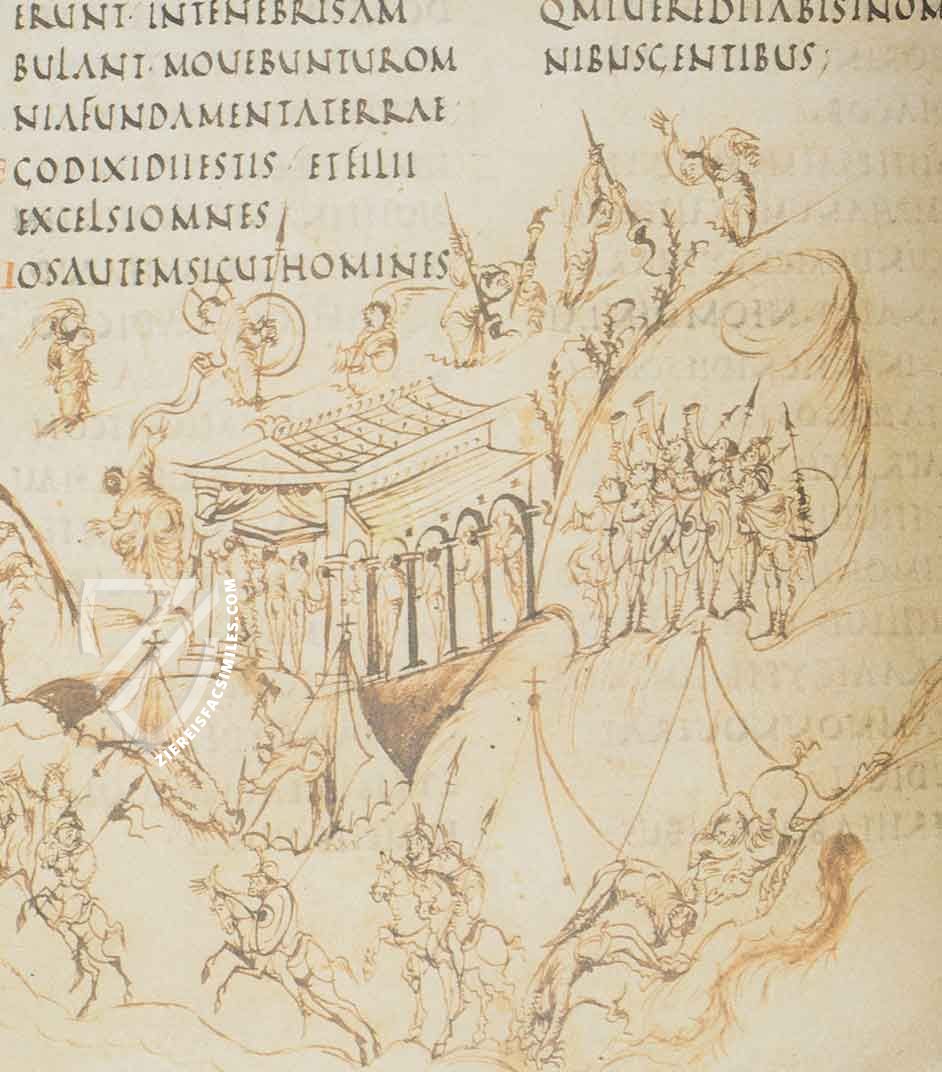 ERUNT· INTENEBRISAM
BULANT· MOUEBUNTUROM
NIAFUNDAMENTATERRAE
EGODIXIDIIESTIS· ETFILII
EXCELSIOMNES
UOSAUTEMSICUTHOMINES
QMTUEREDITABISINOM
NIBUSGENTIBUS;
ZIEREISFACSIMILES.COM